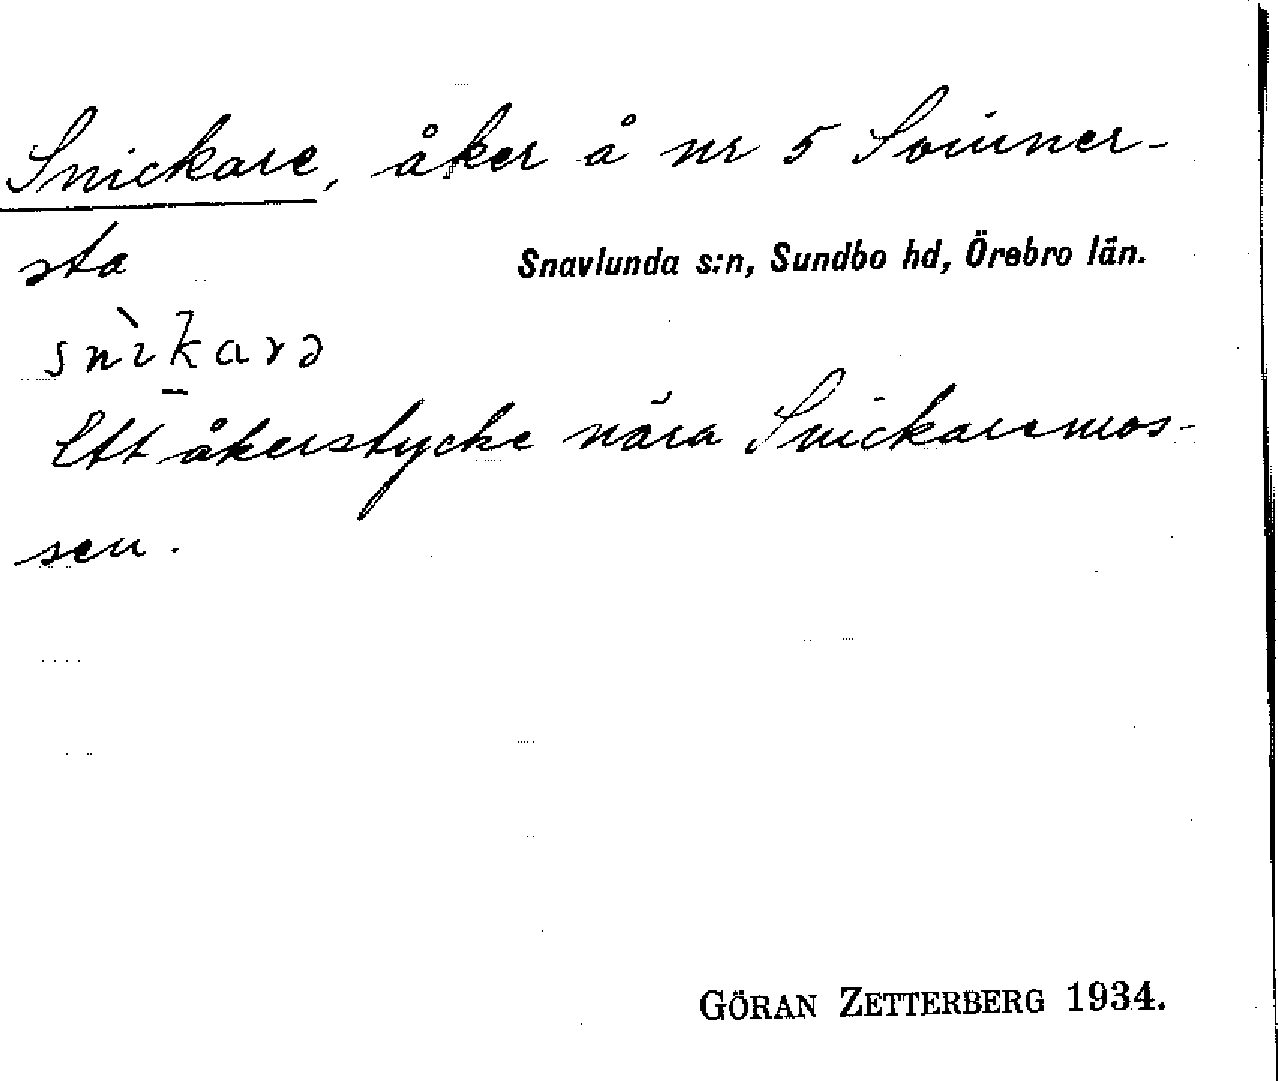 Snickare, åker å nr 5 Svinner-
sta
Snavlunda s:n, Sundbo hd, Örebro län.
snìk̲arə
Ett åkerstycke nära Snickaremos-
sen.
GÖRAN ZETTERBERG 1934.